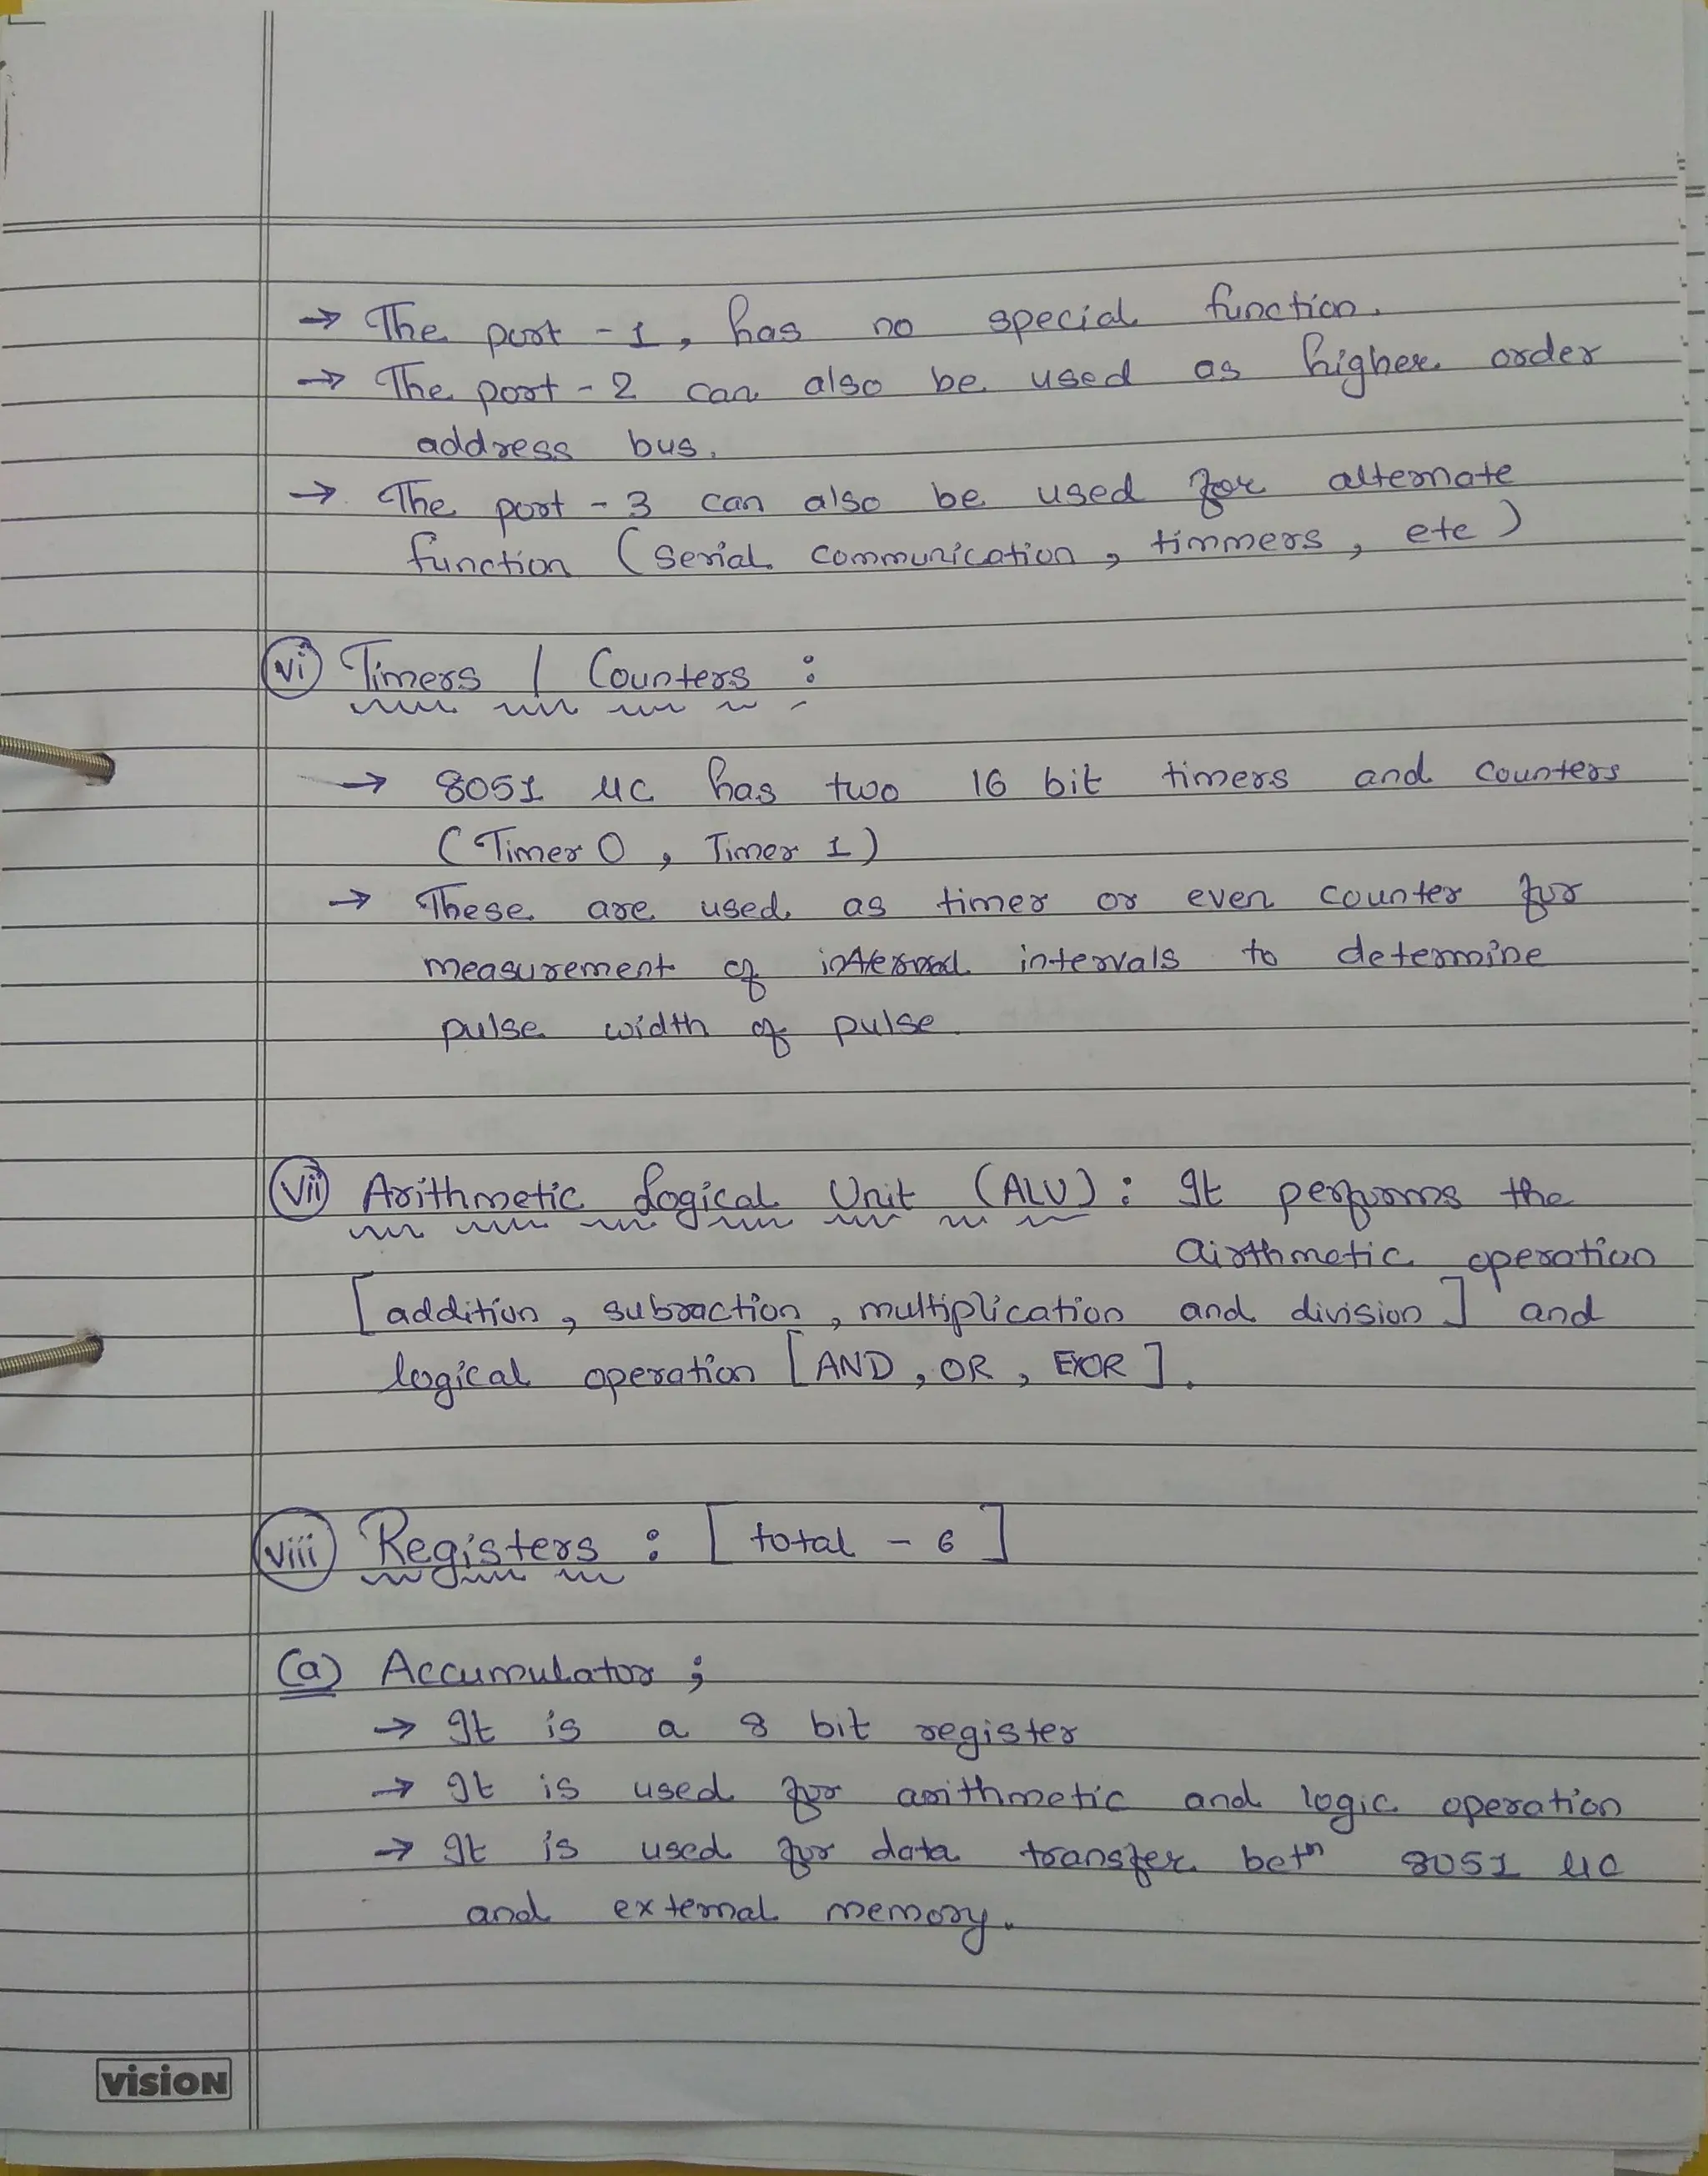 → The port - 1, has no special function.
→ The port - 2 can also be used as higher order
address bus.
→ The port - 3 can also be used for alternate
function (serial communication, timmers, etc)
(vi) Timers / Counters :
→ 8051 μc has two 16 bit timers and counters
(Timer 0, Timer 1)
→ These are used as timer or even counter for
measurement of intervals to determine
pulse width of pulse.
(vii) Arithmetic Logical Unit (ALU) : It performs the
airthmetic operation
[addition, subraction, multiplication and division] and
logical operation [AND, OR, EXOR].
(viii) Registers : [total - 6]
(a) Accumulator ;
→ It is a 8 bit register
→ It is used for arithmetic and logic operation
→ It is used for data transfer betn 8051 μc
and external memory.
vision